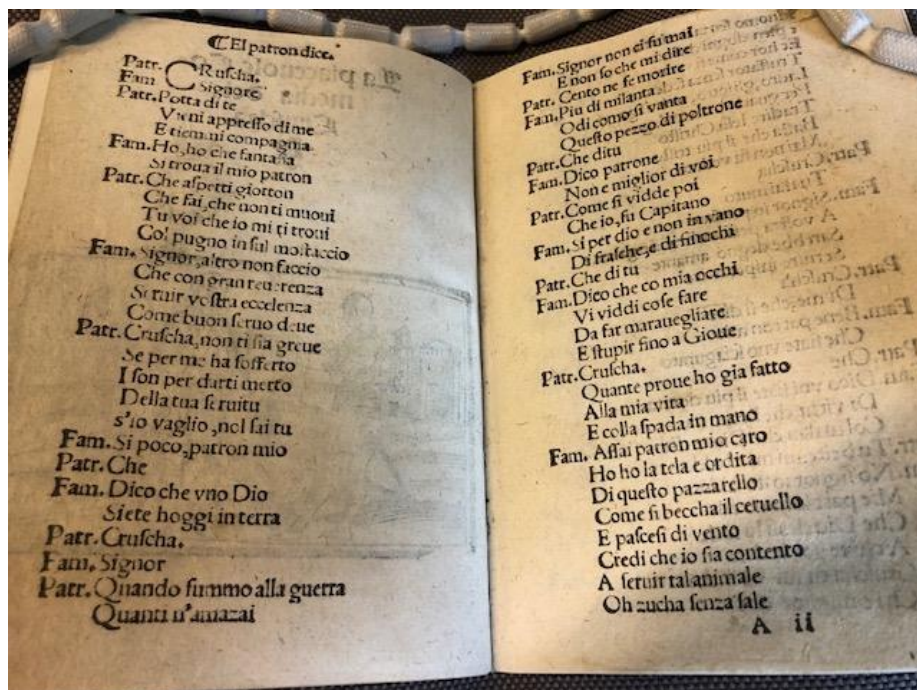 ☾El patron dice.
Patr. CRuscha.
Fam. Signore
Patr. Potta di te
Vieni appresso di me
E tiemmi compagnia
Fam. Ho, ho che fantasia
Si troua il mio patron
Patr. Che aspetti giotton
Che fai, che non ti muoui
Tu voi che io mi ti troui
Col pugno in sul mostaccio
Fam. Signor, altro non faccio
Che con gran reuerenza
Seruir vostra eccelenza
Come buon seruo deue
Patr. Cruscha, non ti sia greue
Se per me ha sofferto
I son per darti merto
Della tua seruitu
s'io vaglio, nol sai tu
Fam. Si poco, patron mio
Patr. Che
Fam. Dico che vno Dio
Siete hoggi in terra
Patr. Cruscha.
Fam. Signor
Patr. Quando fummo alla guerra
Quanti n'amazai
Fam. Signor non ci fu mai
E non so che mi dire
Patr. Cento ne fe morire
Fam. Piu di milanta
Odi como si vanta
Questo pezzo di poltrone
Patr. Che ditu
Fam. Dico patrone
Non e miglior di voi
Patr. Come si vidde poi
Che io, fu Capitano
Fam. Si per dio e non in vano
Di frasche, e di finochi
Patr. Che di tu
Fam. Dico che co mia occhi
Vi viddi cose fare
Da far marauegliare
E stupir fino a Gioue
Patr. Cruscha.
Quante proue ho gia fatto
Alla mia vita
E colla spada in mano
Fam. Assai patron mio caro
Ho ho la tela e ordita
Di questo pazzarello
Come si beccha il ceruello
E pascesi di vento
Credi che io sia contento
A seruir tal animale
Oh zucha senza sale
A ii